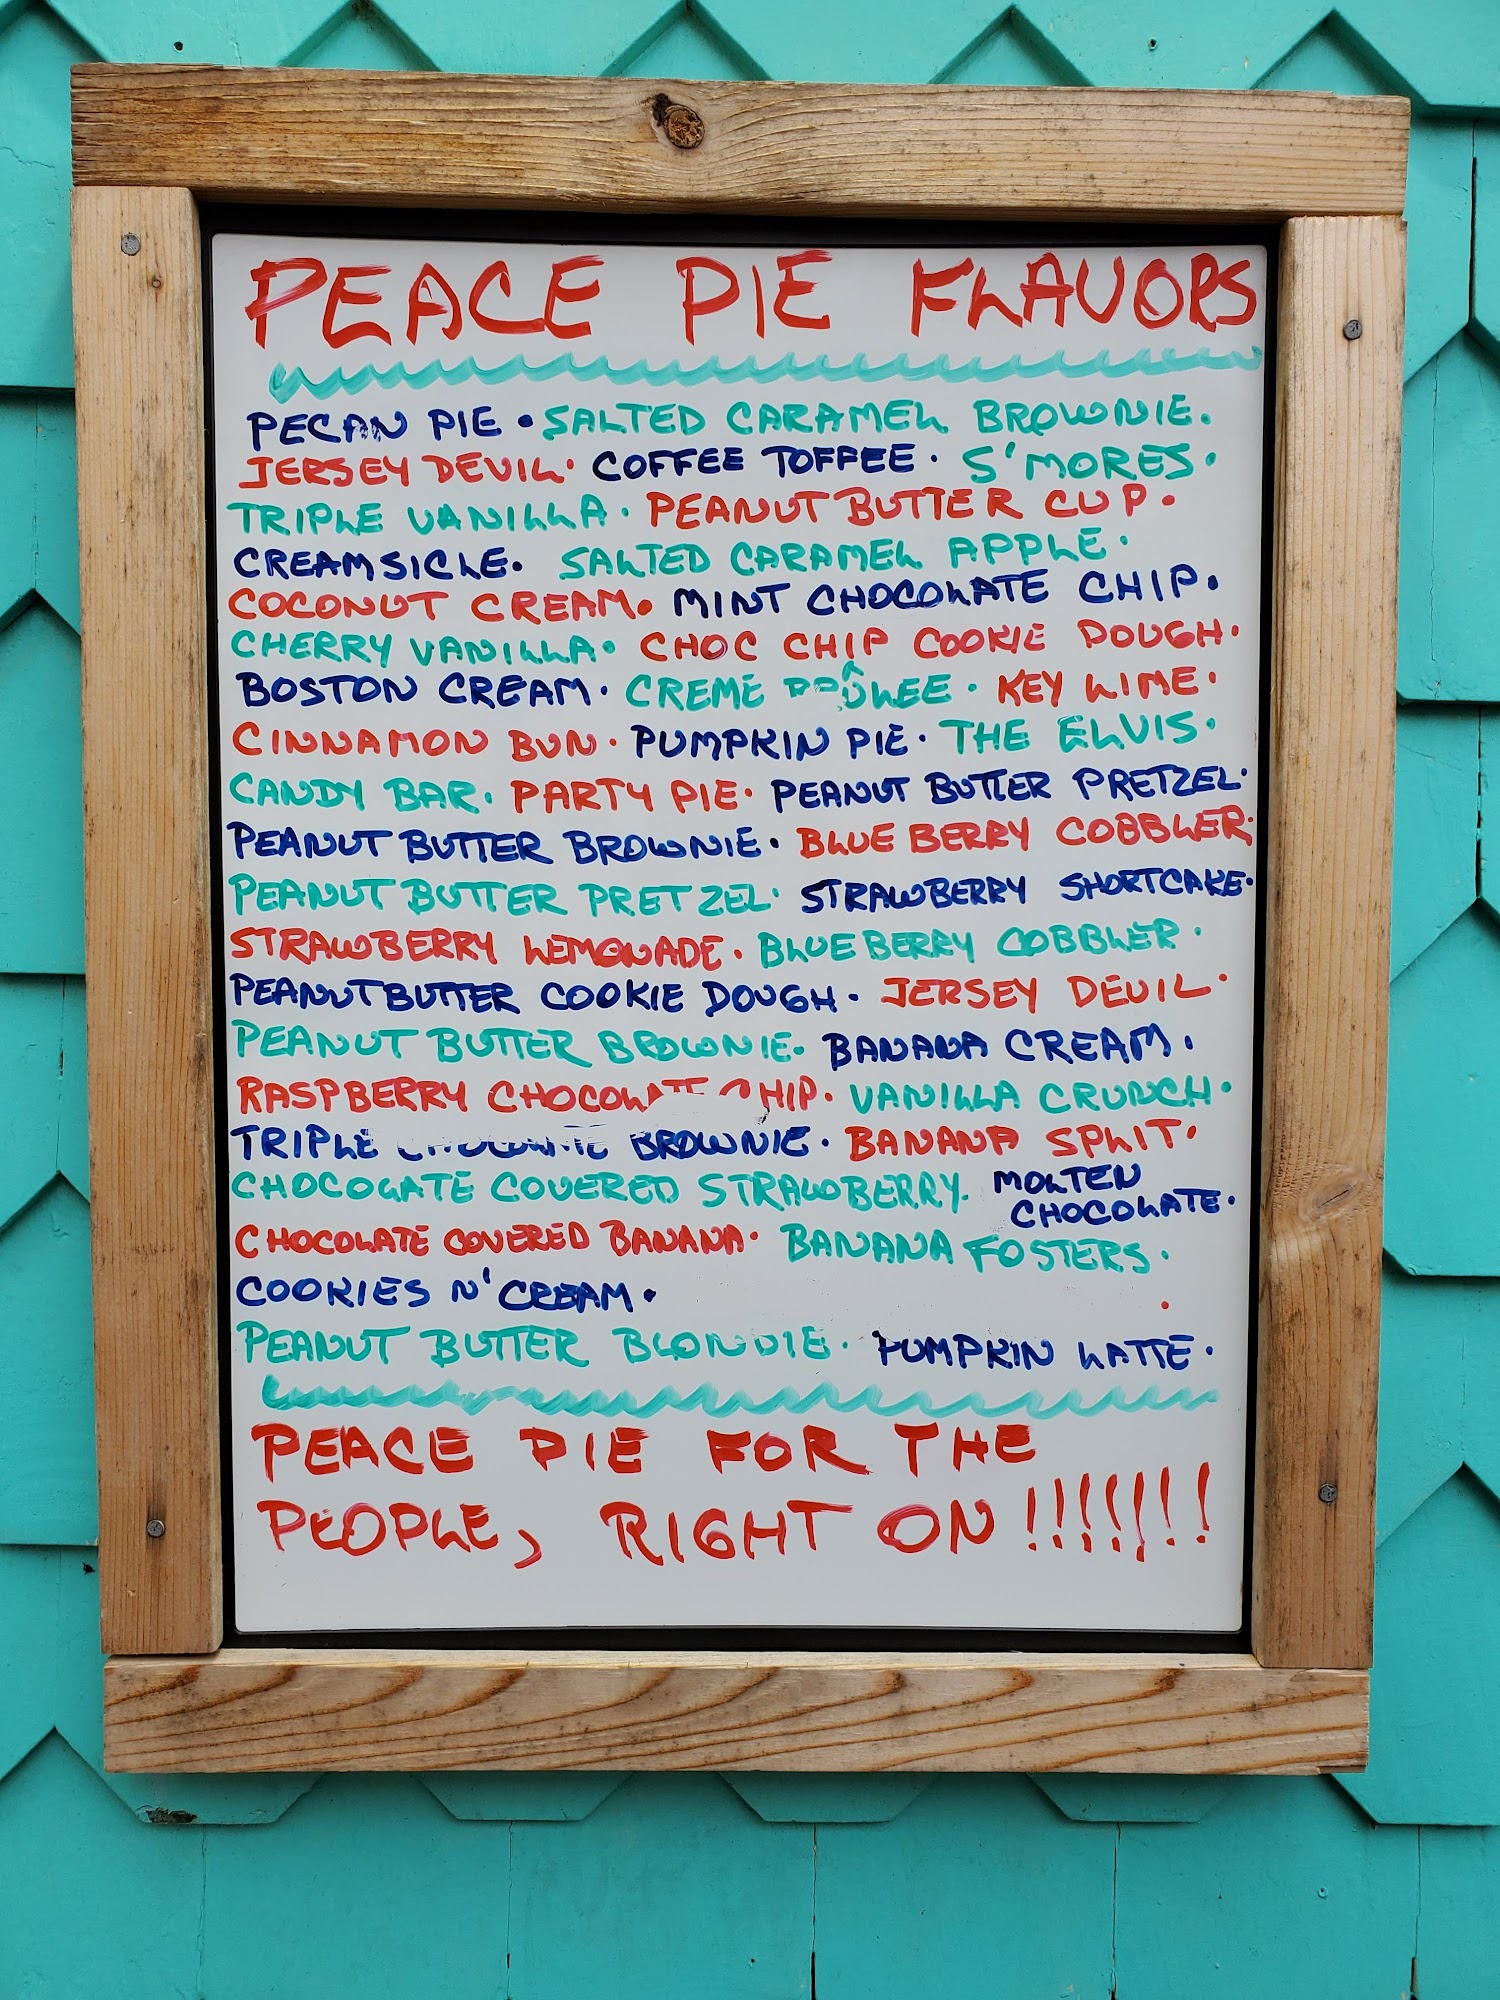 PEACE PIE FLAVORS
PECAN PIE • SALTED CARAMEL BROWNIE.
JERSEY DEVIL • COFFEE TOFFEE • S'MORES •
TRIPLE VANILLA • PEANUT BUTTER CUP •
CREAMSICLE • SALTED CARAMEL APPLE •
COCONUT CREAM • MINT CHOCOLATE CHIP •
CHERRY VANILLA • CHOC CHIP COOKIE DOUGH •
BOSTON CREAM • CREME BRÛLEE • KEY LIME •
CINNAMON BUN • PUMPKIN PIE • THE ELVIS •
CANDY BAR • PARTY PIE • PEANUT BUTTER PRETZEL •
PEANUT BUTTER BROWNIE • BLUEBERRY COBBLER •
PEANUT BUTTER PRETZEL • STRAWBERRY SHORTCAKE •
STRAWBERRY LEMONADE • BLUEBERRY COBBLER •
PEANUT BUTTER COOKIE DOUGH • JERSEY DEVIL •
PEANUT BUTTER BROWNIE • BANANA CREAM •
RASPBERRY CHOCOLATE CHIP • VANILLA CRUNCH •
TRIPLE CHOCOLATE BROWNIE • BANANA SPLIT •
CHOCOLATE COVERED STRAWBERRY • MOLTEN
CHOCOLATE •
CHOCOLATE COVERED BANANA • BANANA FOSTERS •
COOKIES N' CREAM •
PEANUT BUTTER BLONDIE • PUMPKIN LATTE •
PEACE PIE FOR THE
PEOPLE, RIGHT ON !!!!!!!